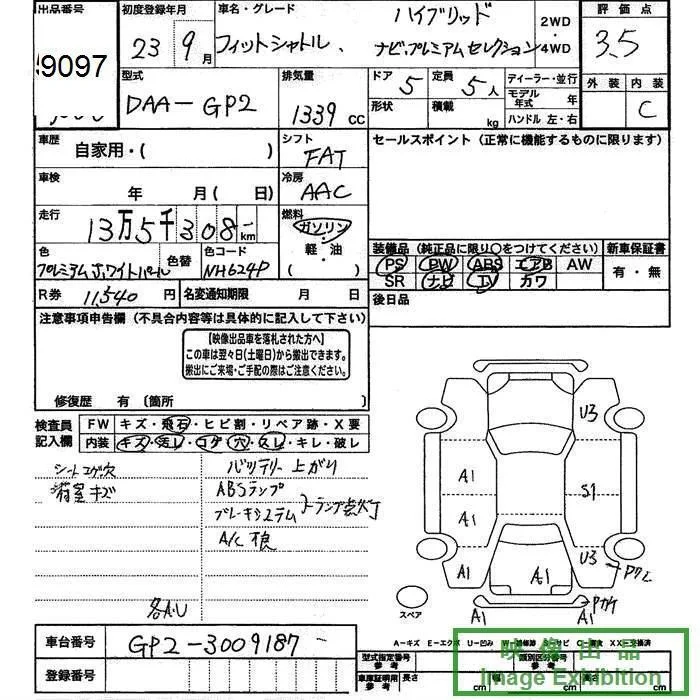 出品番号
9097
初度登録年月
23 9月
車名・グレード
フィットシャトル、
ハイブリッド
ナビプレミアムセレクション
2WD
・
4WD
評価点
3.5
外装 内装
C
型式
DAA-GP2
排気量
1339 CC
ドア 5
形状
定員 5人
積載 kg
ディーラー・並行
モデル年式 年
ハンドル 左・右
車歴
自家用・( )
シフト
FAT
セールスポイント (正常に機能するものに限ります)
車検
年 月( 日)
冷房
AAC
走行
13万5千308 km
燃料
ガソリン・
軽・油
( )
色
プレミアムホワイトパール
色替
色コード
NH624P
装備品 (純正品に限り○をつけてください)
PS PW ABS エアB AW
SR ナビ TV カワ
新車保証書
有・無
R券 11,540円
名変通知期限 月 日
後日品
注意事項申告欄(不具合内容等は具体的に記入して下さい)
【映像出品車を落札された方へ】
この車は翌々日(土曜日)から搬出できます。
搬出にご来場・ご手配の際はご注意ください。
修復歴 有 〔箇所 〕
検査員
記入欄
FW キズ・飛石・ヒビ割・リペア跡・X要
内装 キズ・汚レ・コゲ・穴・スレ・キレ・破レ
シートコゲ穴
荷室キズ
バッテリー上がり
ABSランプ
ブレーキシステム
ランプ点灯
A/C 不良
各A.U
U3
A1
S1
A1
U3
A1
A1
A1
A1
スペア
車台番号
GP2-3009187
登録番号
A-キズ E-エクボ U-凹み
型式指定番号
参考
類別区分番号
参考
車庫証明用
参考
長さ cm
幅 cm
cm
映像出品
Image Exhibition